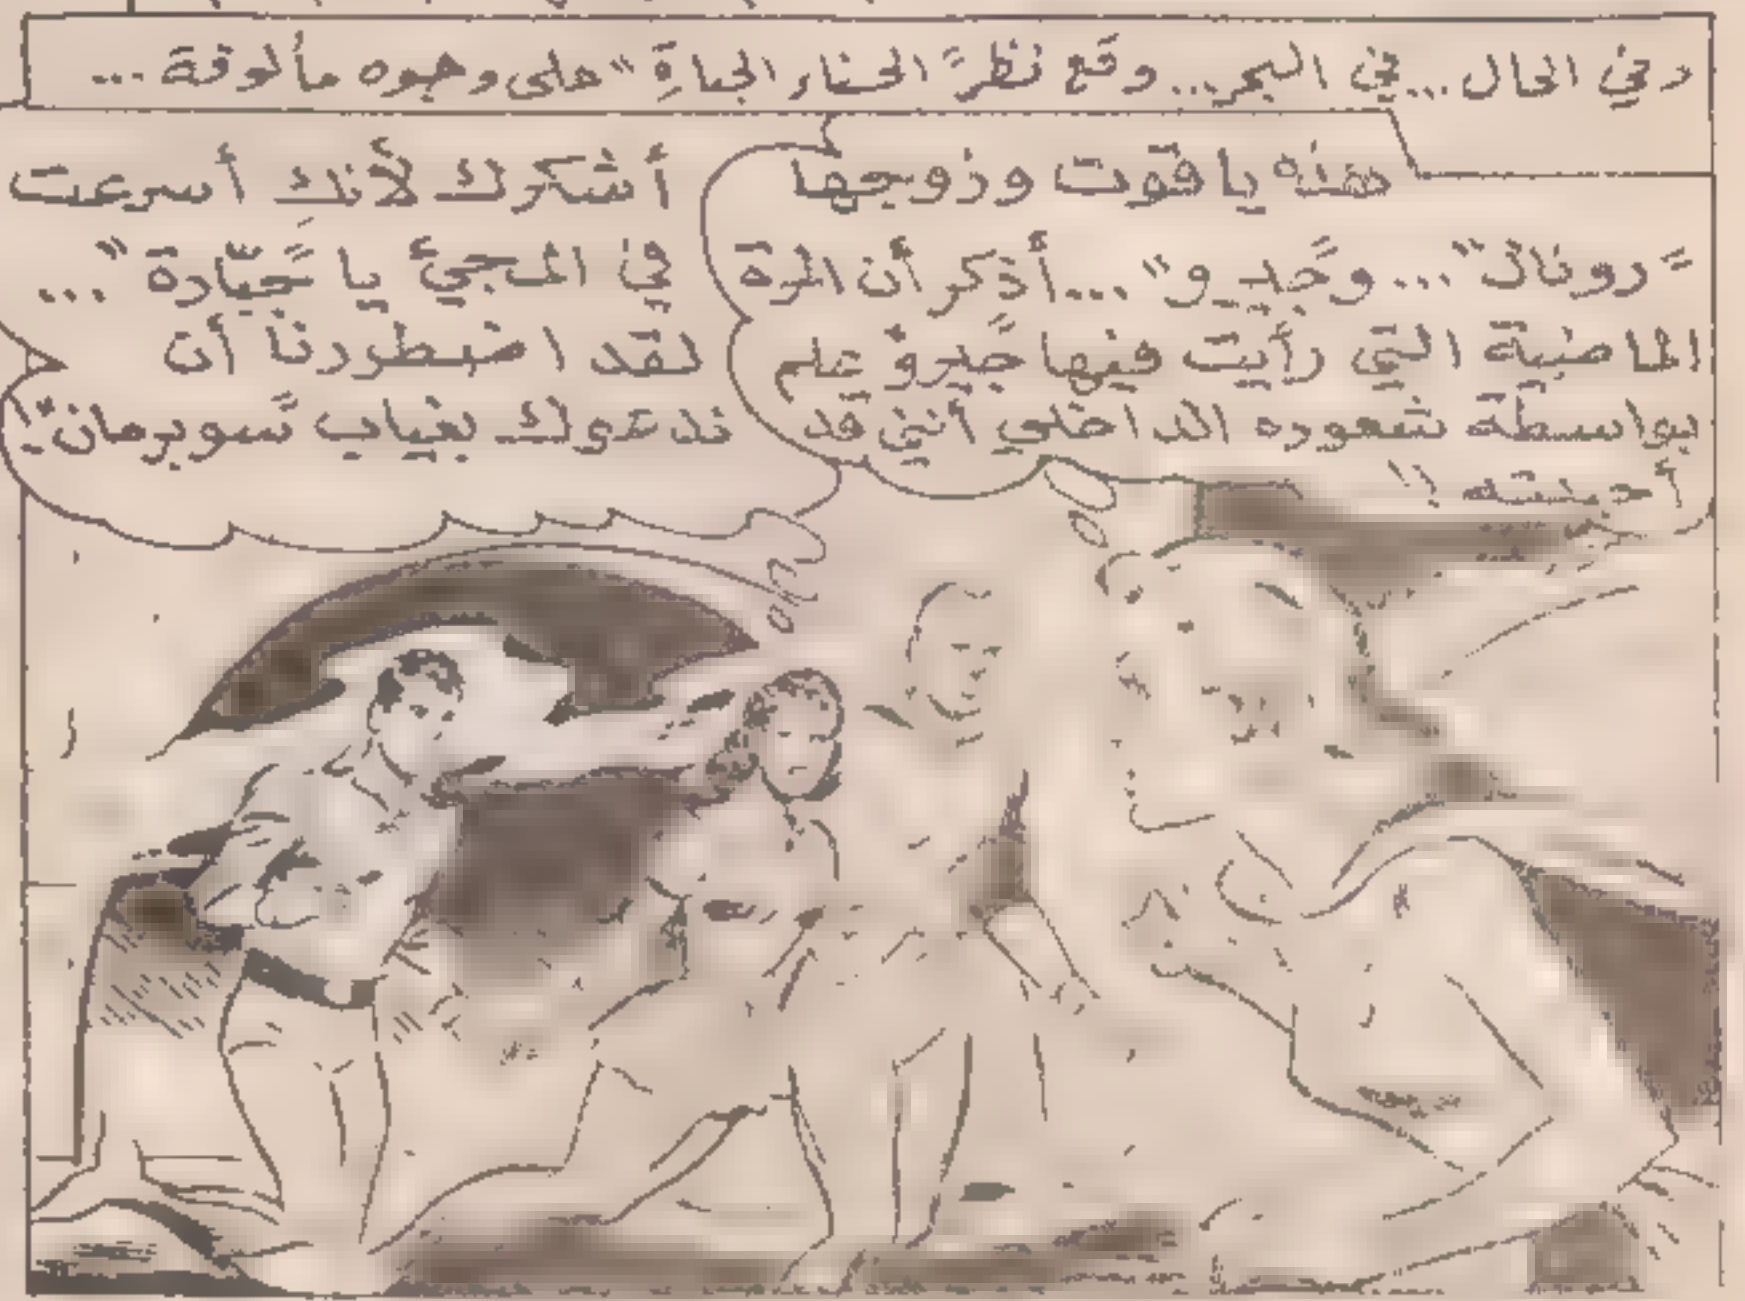 وفي الحال... في البحر... وقع نظر "الحسناء الجبارة" على وجوه مألوفة...
هذه ياقوت وزوجها
"رونال"... و"جيرو"... أذكر أن المرة
الماضية التي رأيت فيها "جيرو" علم
بواسطة شعوره الداخلي أنني قد
أحببته !!
أشكرك لأنكِ أسرعت
في المجيئ يا "جبّارة"...
لقد اضطررنا أن
ندعوك بغياب "سوبرمان"!